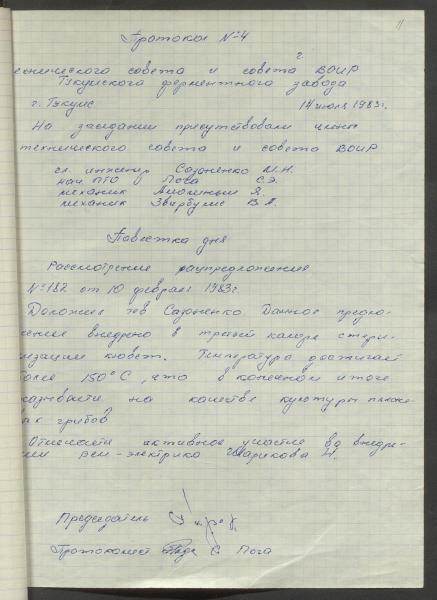 11
Протокол №4
технического совета и совета ВОИР
Тукумского ферментного завода
г. Тукумс 14 июля 1983г.
На заседании присутствовали члены
технического совета и совета ВОИР
гл. инженер Сазоненко М.Н.
нач ПТО Пога С.Э.
механик Я.
механик Звирбулис В.
Повестка дня
Рассмотрение рацпредложения
№182 от 10 февраля 1983г.
Доложил тов Сазоненко. Данное предло-
жение внедрено в третьей камере стери-
лизации кювет. Температура достигает
более 150°С, что в конечном итоге
на качестве культуры плесне-
вых грибов
Отмечает активное участие во внедре-
нии эл-электрика Шарикова Н.
Председатель
Протоколист С. Пога